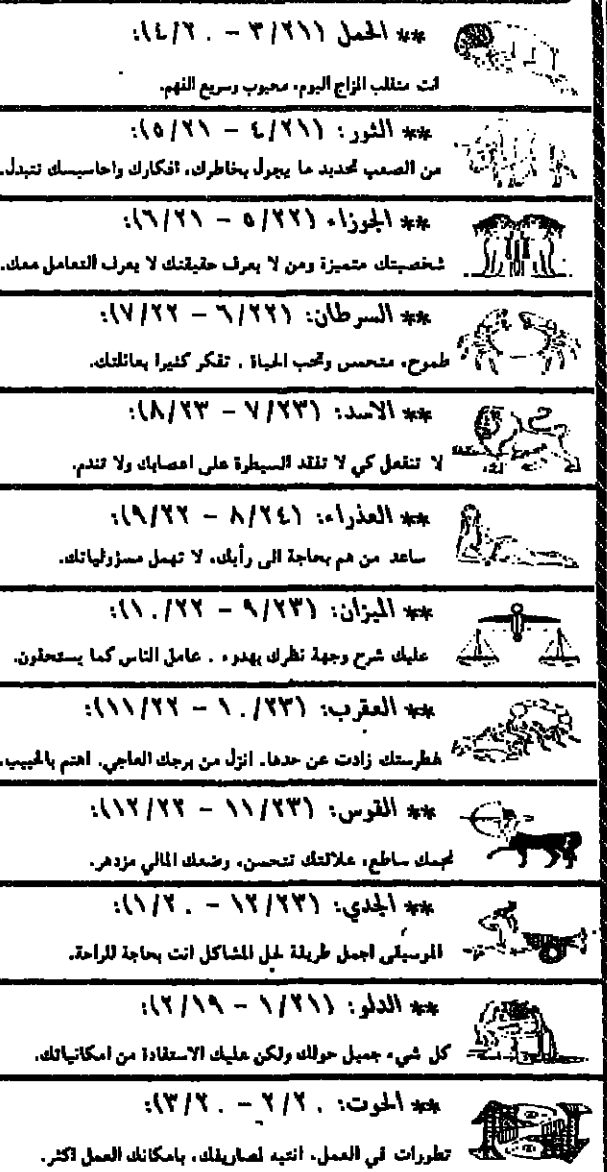 ** الحمل (٣/٢١ – ٤/٢٠):
انت متقلب المزاج اليوم، محبوب وسريع الفهم.
** الثور: (٤/٢١ – ٥/٢١):
من الصعب تحديد ما يجول بخاطرك، افكارك واحاسيسك تتبدل.
** الجوزاء (٥/٢٢ – ٦/٢١):
شخصيتك متميزة ومن لا يعرف حقيقتك لا يعرف التعامل معك.
** السرطان: (٦/٢٢ – ٧/٢٢):
طموح، متحمس وتحب الحياة . تفكر كثيرا بعائلتك.
** الاسد: (٧/٢٣ – ٨/٢٣):
لا تنفعل كي لا تفقد السيطرة على اعصابك ولا تندم.
** العذراء: (٨/٢٤ – ٩/٢٢):
ساعد من هم بحاجة الى رأيك، لا تهمل مسؤولياتك.
** الميزان: (٩/٢٣ – ١٠/٢٢):
عليك شرح وجهة نظرك بهدوء . عامل الناس كما يستحقون.
** العقرب: (١٠/٢٣ – ١١/٢٢):
غطرستك زادت عن حدها. انزل من برجك العاجي. اهتم بالحبيب.
** القوس: (١١/٢٣ – ١٢/٢٢):
نجمك ساطع، علاقتك تتحسن، وضعك المالي مزدهر.
** الجدي: (١٢/٢٣ – ١/٢٠):
الموسيقى اجمل طريقة لحل المشاكل انت بحاجة للراحة.
** الدلو: (١/٢١ – ٢/١٩):
كل شيء جميل حولك ولكن عليك الاستفادة من امكانياتك.
** الحوت: ٢/٢٠ – ٣/٢٠):
تطورات في العمل، انتبه لمصاريفك، بامكانك العمل اكثر.